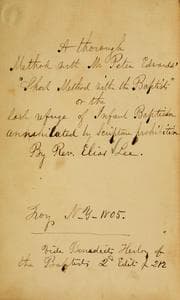 A thorough
Method with Mr Peter Edwards'
"Short Method with the Baptists"
or the
last refuge of Infant Baptism
annihilated by scripture prohibition
By Rev. Elias Lee.
Troy N.Y. 1805.
Vide Benedict's History of
the Baptists 2d Edit p 212